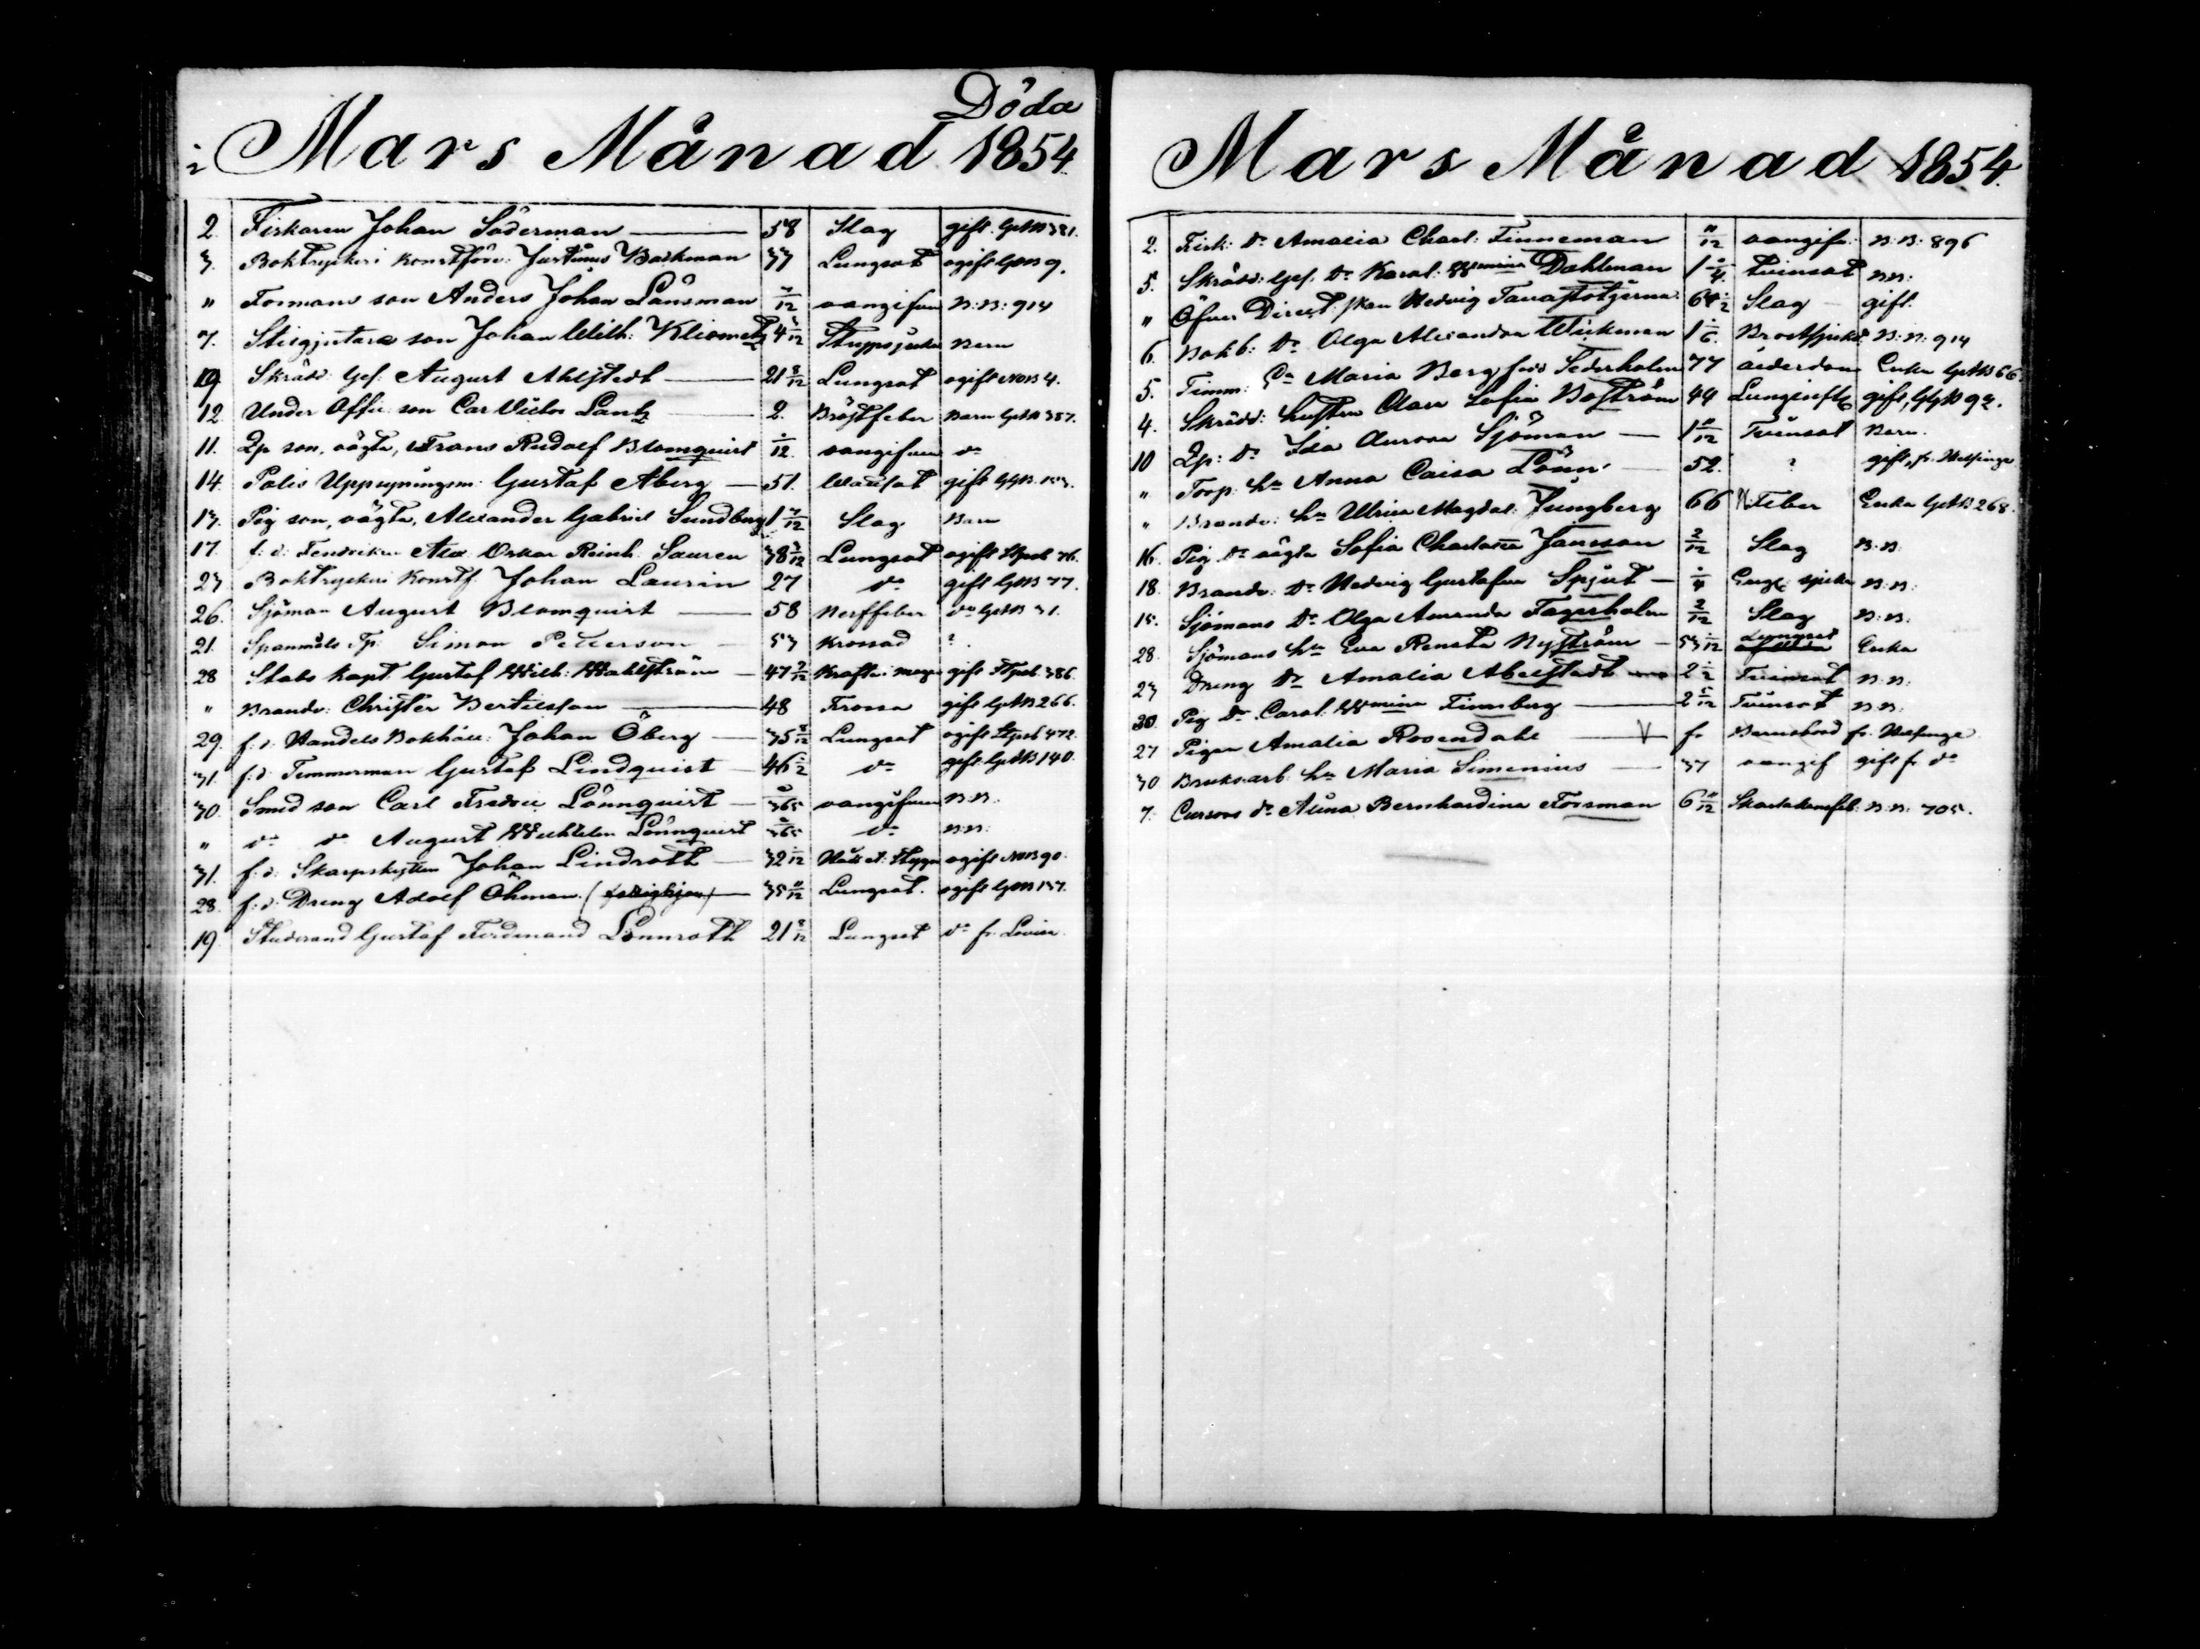 Döda
i Mars Månad 1854.
2. Fiskaren Johan Söderman 58 Slag gift. GAB 381.
3. Boktryckeri konstför: Justinus Backman 33 Lungsot ogift GAB 9.
" Formans son Anders Johan Länsman 3/12 oangifven B:B: 914
7. son Johan Wilh: 4 3/12 Strypsjuka Barn
19 Skrädd: Ges: August Ahlstedt 21 8/12 Lungsot ogift NOB 4.
12 Under Offic: son Carl Victor Lantz 2. Bröstfeber Barn GAB 387.
11. Qp son, oägta, Frans Rudolf Blomquist 1/12. oangifven do
14. Polis Uppsyningsm: Gustaf Åberg 51. gift
13. Pig son, oägta, Alexander Gabriel Sundberg 1 7/12 Slag Barn
17. f: d: Fendriken Alex: Oskar Reinh: Sauren 38 3/12 Lungsot ogift 76.
23 Boktryckeri Konstf. Johan Laurin 27 do gift GAB 77.
26. Sjöman August Blomquist 58 Nerffeber do GAB 31.
21. Spanmåls Tp: Simon Petterson 53 Krossad ?.
28 Stabs Kapt. Gustaf Wilh: Wahlström 47 7/12 gift 386.
" Brandv: Christer Bertilsson 48 Frossa gift GAB 266.
29. f: d: Handels Bokhåll: Johan Öberg 35 8/12 Lungsot ogift 472.
31. f: d: Timmerman Gustaf Lindquist 46 1/2 do gift GAB 140.
30. Smed son Carl Fredric Lönnquist 2/365 oangifven B:B.
" do do August Wilhelm Lönnquist 2/365 do B:B:
31. f: d: Skarpskytten Johan Lindroth 32 1/12 Håll o: Stygn ogift NOB 90.
28. f: d: Dreng Adolf Öhman 35 11/12 Lungsot. ogift GAB 137.
19. Studerand Gustaf Ferdinand Lönnroth 21 8/12 Lungsot do fr. Lovisa.
Mars Månad 1854.
2. Fisk: dr Amalia Charl: Finneman 11/12 oangifv: B:B: 896
5. Skrädd: Ges: dr Karol: Wmina Dahlman 1 3/4. Tvinsot B:B:
" Öfver Direct: fkan Hedvig Tavaststjerna 64 1/2 Slag gift.
6. Bokb: dr Olga Alexandra Wickman 1 1/6. Bröstsjukd: B:B: 914
5. Timm: Ea Maria Berg född Sederholm 77 ålderdom Enka GAB 66.
4. Skrädd: hustru Clara Sofia Boström 44 gift, 92.
10 Qp: dr Ida Aurora Sjöman 1 11/12 Tvinsot Barn.
" Torp: hu Anna Caisa Lönn 52. ? gift, fr. Helsinge
" Brandv: hu Ulrica Magdal: Ljungberg 66 N: Feber Enka GAB 268.
16. Pig dr oägta Sofia Charlotta Jansson 2/12 Slag B:B.
18. Brandv: dr Hedvig Gustafva Spjut 1/4 B:B:
15. Sjömans dr Olga Amanda Fagerholm 2/12 Slag B:B.
28. Sjömans hu Eva Renata Nyström 53 1/12 Lungsot Enka
23 Dreng dr Amalia Abelstedt 2 1/2 Tvinsot B:B:
30. Pig dr Carol: Wmina Finnberg 2 5/12 Tvinsot B:B:
27 Pigan Amalia Rosendahl V fr Barnsbörd fr. Helsinge
30 Bruksarb: hu Maria Simenius 37 oangif gift fr do
7. Cursors dr Alina Bernhardina Forsman 6 11/12 Skarlakansfeb: B:B: 705.